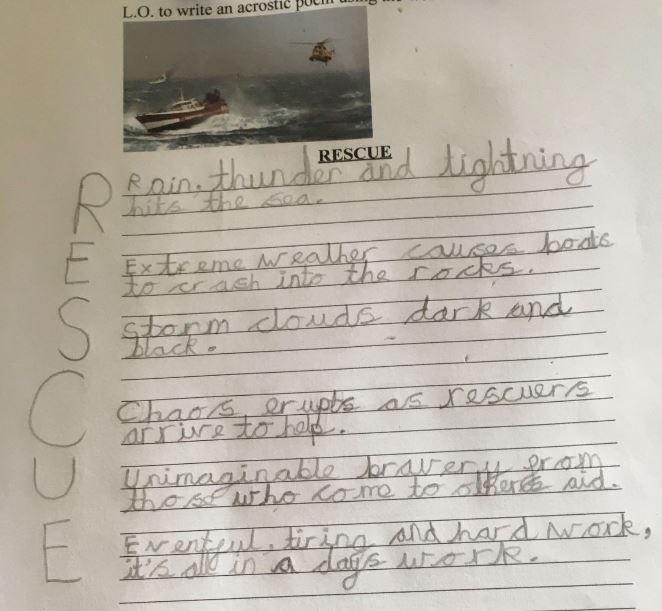 L.O. to write an acrostic poem using the
RESCUE
R Rain, thunder and lightning
hits the sea.
E Extreme weather causes boats
to crash into the rocks.
S Storm clouds dark and
black.
C Chaos erupts as rescuers
arrive to help.
U Unimaginable bravery from
those who come to others aid.
E Eventful, tiring and hard work,
it's all in a days work.